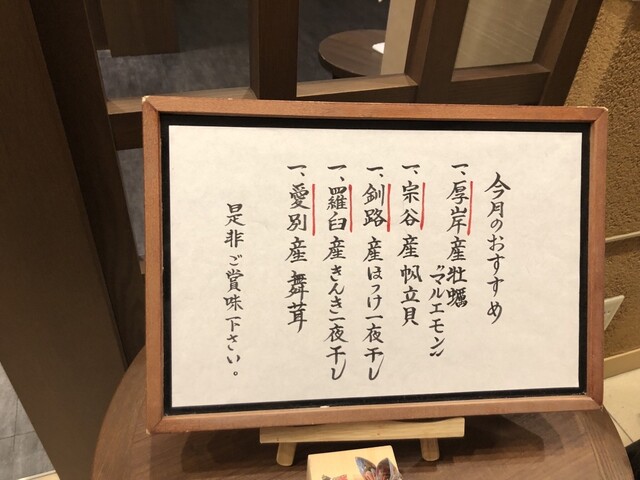 今月のおすすめ
一、厚岸産牡蠣
“マルエモン”
一、宗谷産帆立貝
一、釧路産ほっけ一夜干し
一、羅臼産きんき一夜干し
一、愛別産舞茸
是非ご賞味下さい。